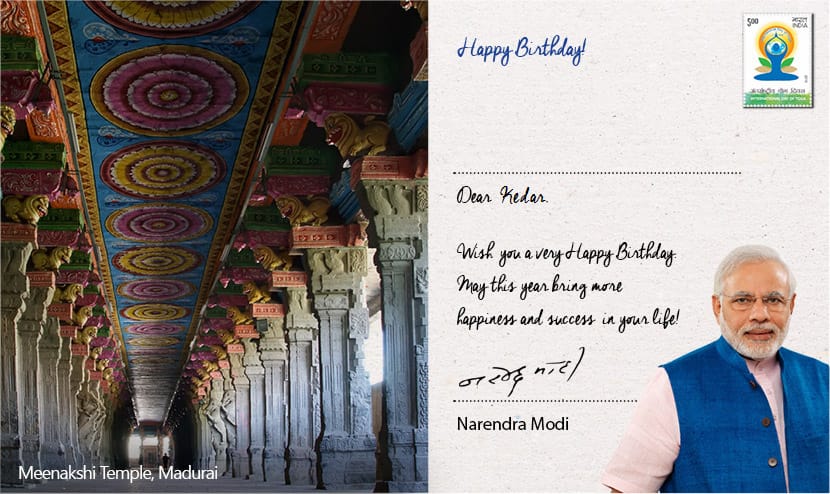 Happy Birthday!
5.00 भारत
INDIA
अंतर्राष्ट्रीय योग दिवस
INTERNATIONAL DAY OF YOGA
Dear Kedar.
Wish you a very Happy Birthday.
May this year bring more
happiness and success in your life!
नरेन्द्र मोदी
Narendra Modi
Meenakshi Temple, Madurai